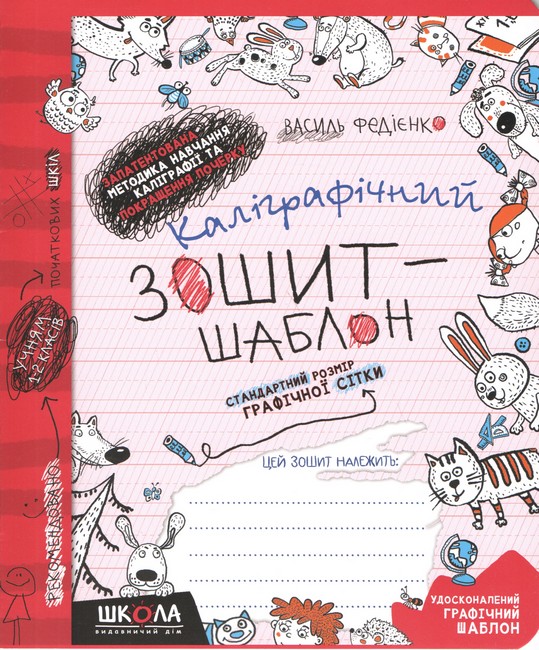 ВАСИЛЬ ФЕДІЄНКО
ЗАПАТЕНТОВАНА
МЕТОДИКА НАВЧАННЯ
КАЛІГРАФІЇ ТА
ПОКРАЩЕННЯ ПОЧЕРКУ
Каліграфічний
ЗОШИТ-
ШАБЛОН
СТАНДАРТНИЙ РОЗМІР
ГРАФІЧНОЇ СІТКИ
ЦЕЙ ЗОШИТ НАЛЕЖИТЬ:
РЕКОМЕНДОВАНО
УЧНЯМ
1-2 КЛАСІВ
ПОЧАТКОВИХ ШКІЛ
ШКОЛА
ВИДАВНИЧИЙ ДІМ
УДОСКОНАЛЕНИЙ
ГРАФІЧНИЙ
ШАБЛОН